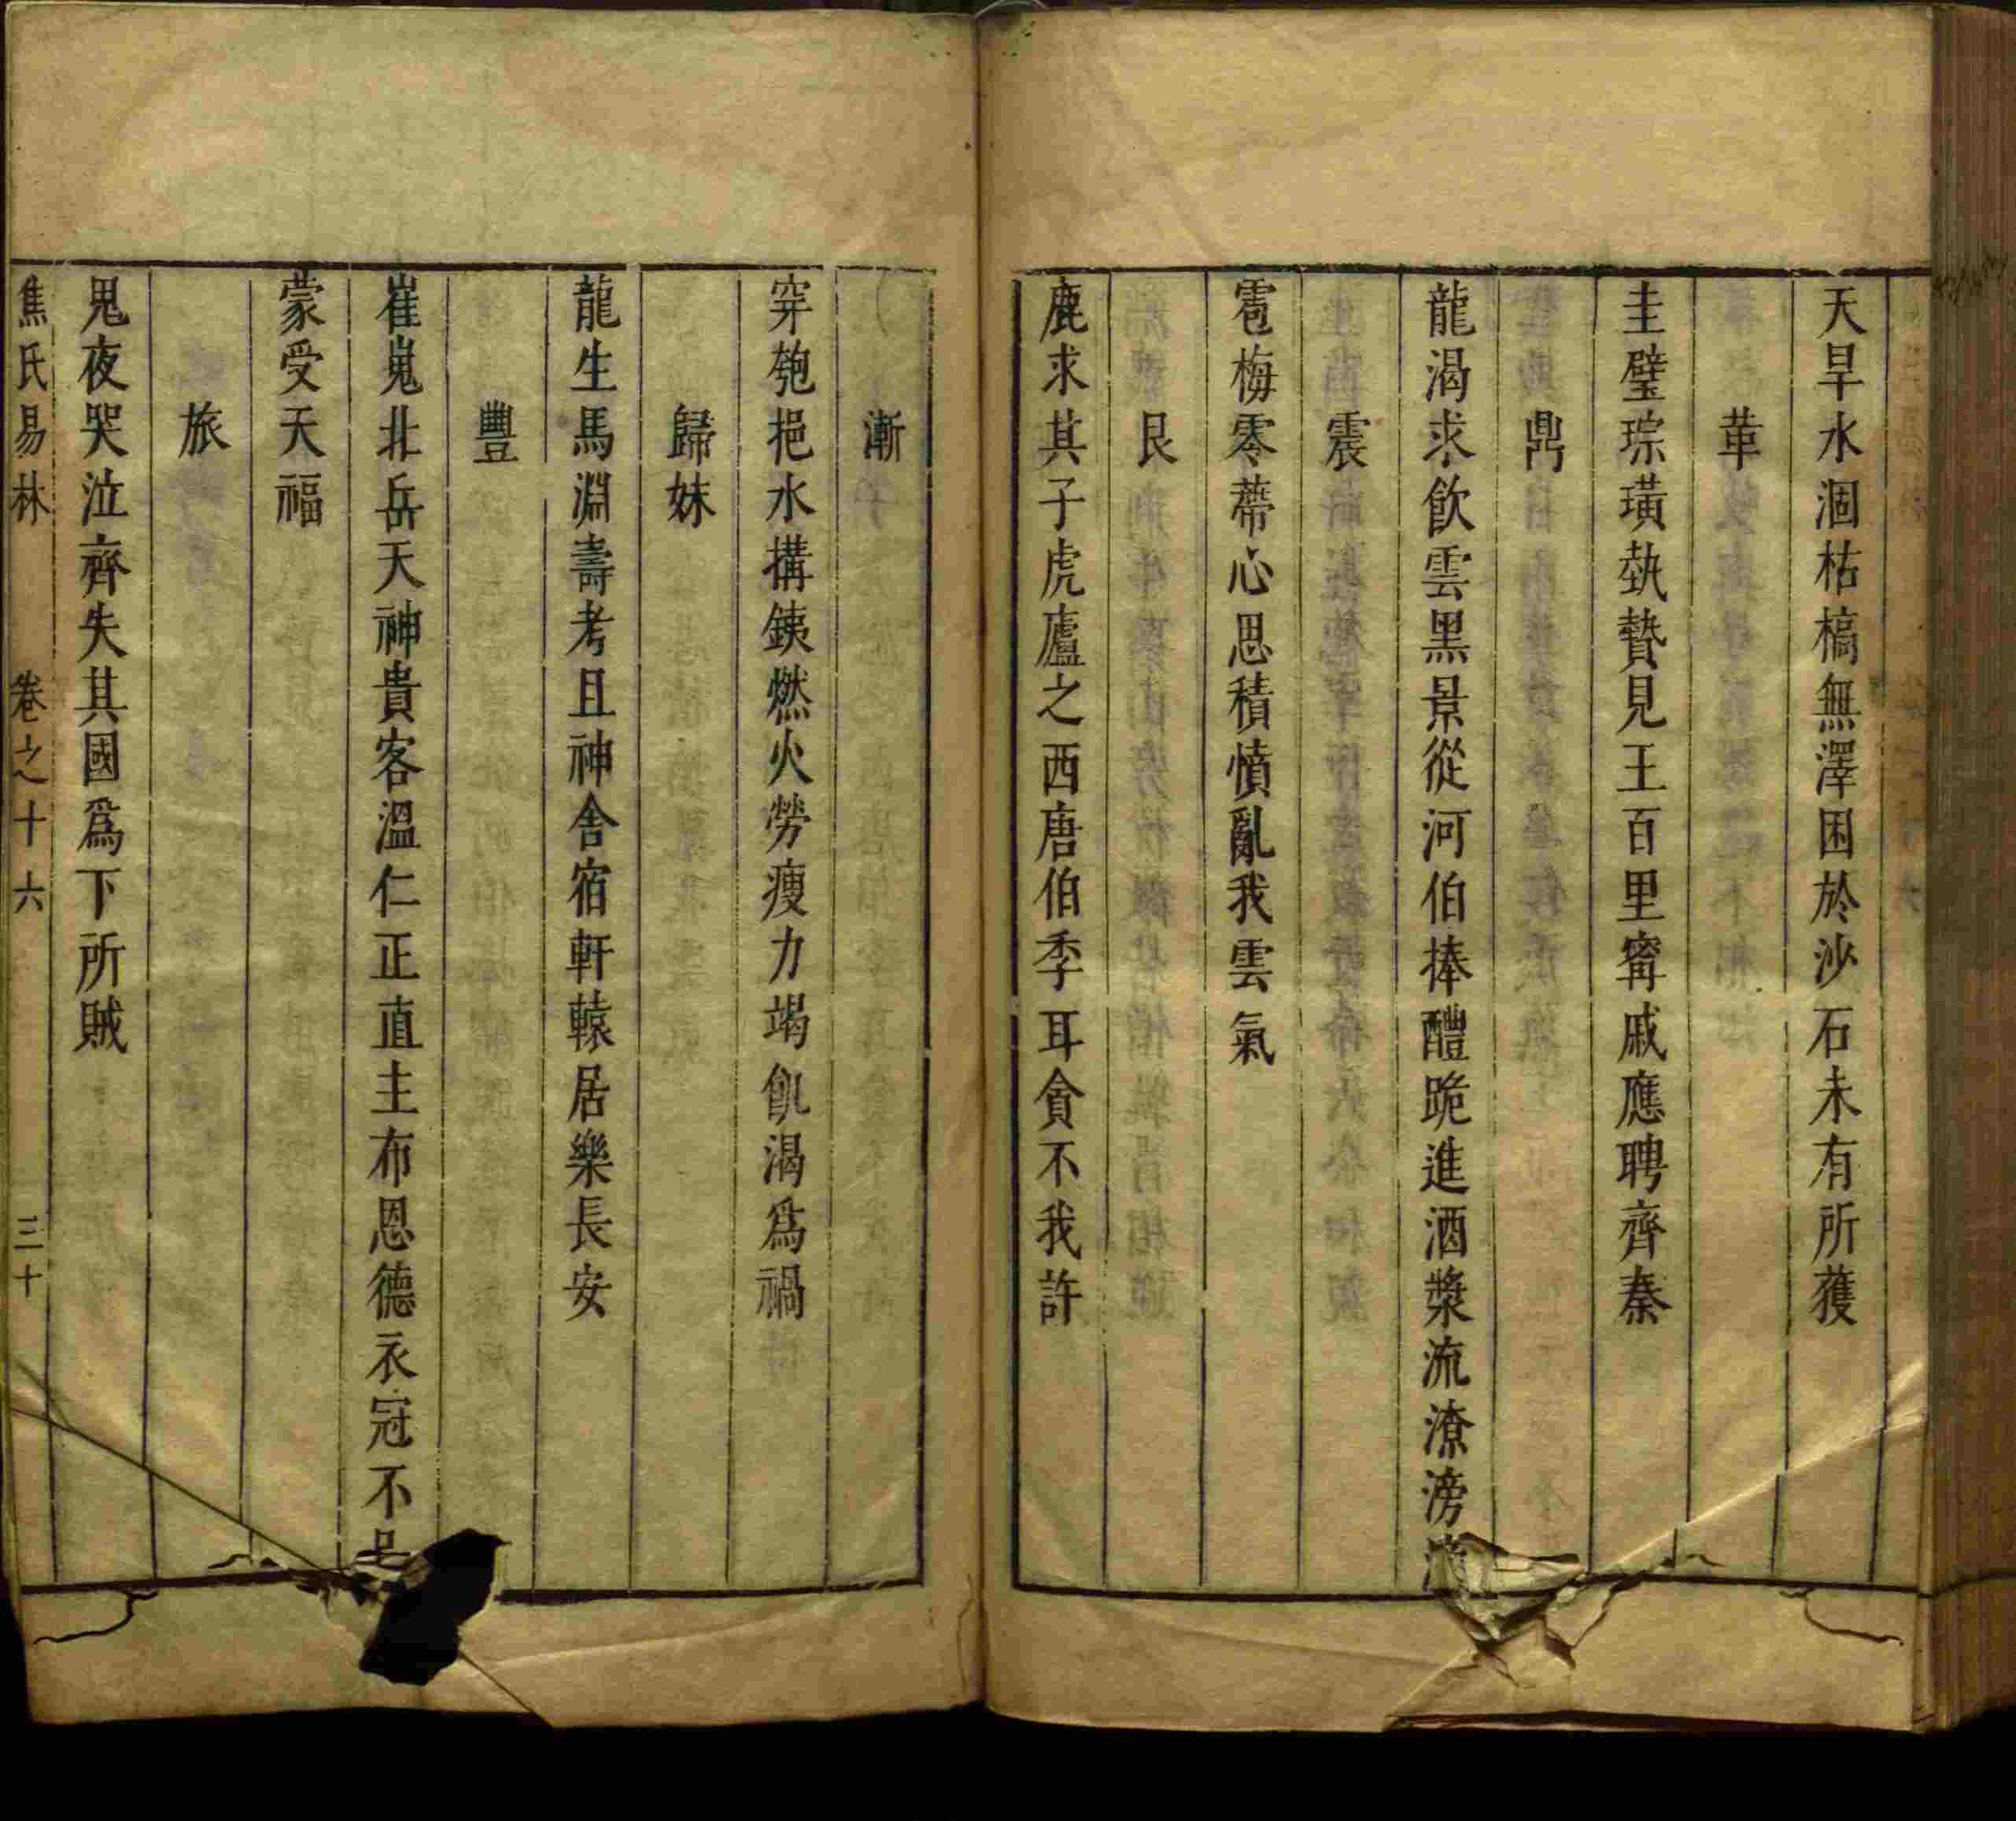 天旱水涸枯槁無澤困於沙石未有所獲
革
圭璧琮璜執贄見王百里甯戚應聘齊秦
鼎
龍渴求飲雲黑景從河伯捧醴跪進酒漿流潦滂
震
雹梅零蔕心思積憤亂我雲氣
艮
鹿求其子虎廬之西唐伯季耳貪不我許
漸
穿匏挹水搆銕燃火勞瘦力竭飢渴爲禍
歸妹
龍生馬淵壽考且神舍宿軒轅居樂長安
豐
崔嵬北岳天神貴客溫仁正直主布恩德衣冠不
蒙受天福
旅
鬼夜哭泣齊失其國爲下所賊
焦氏易林 卷之十六 三十